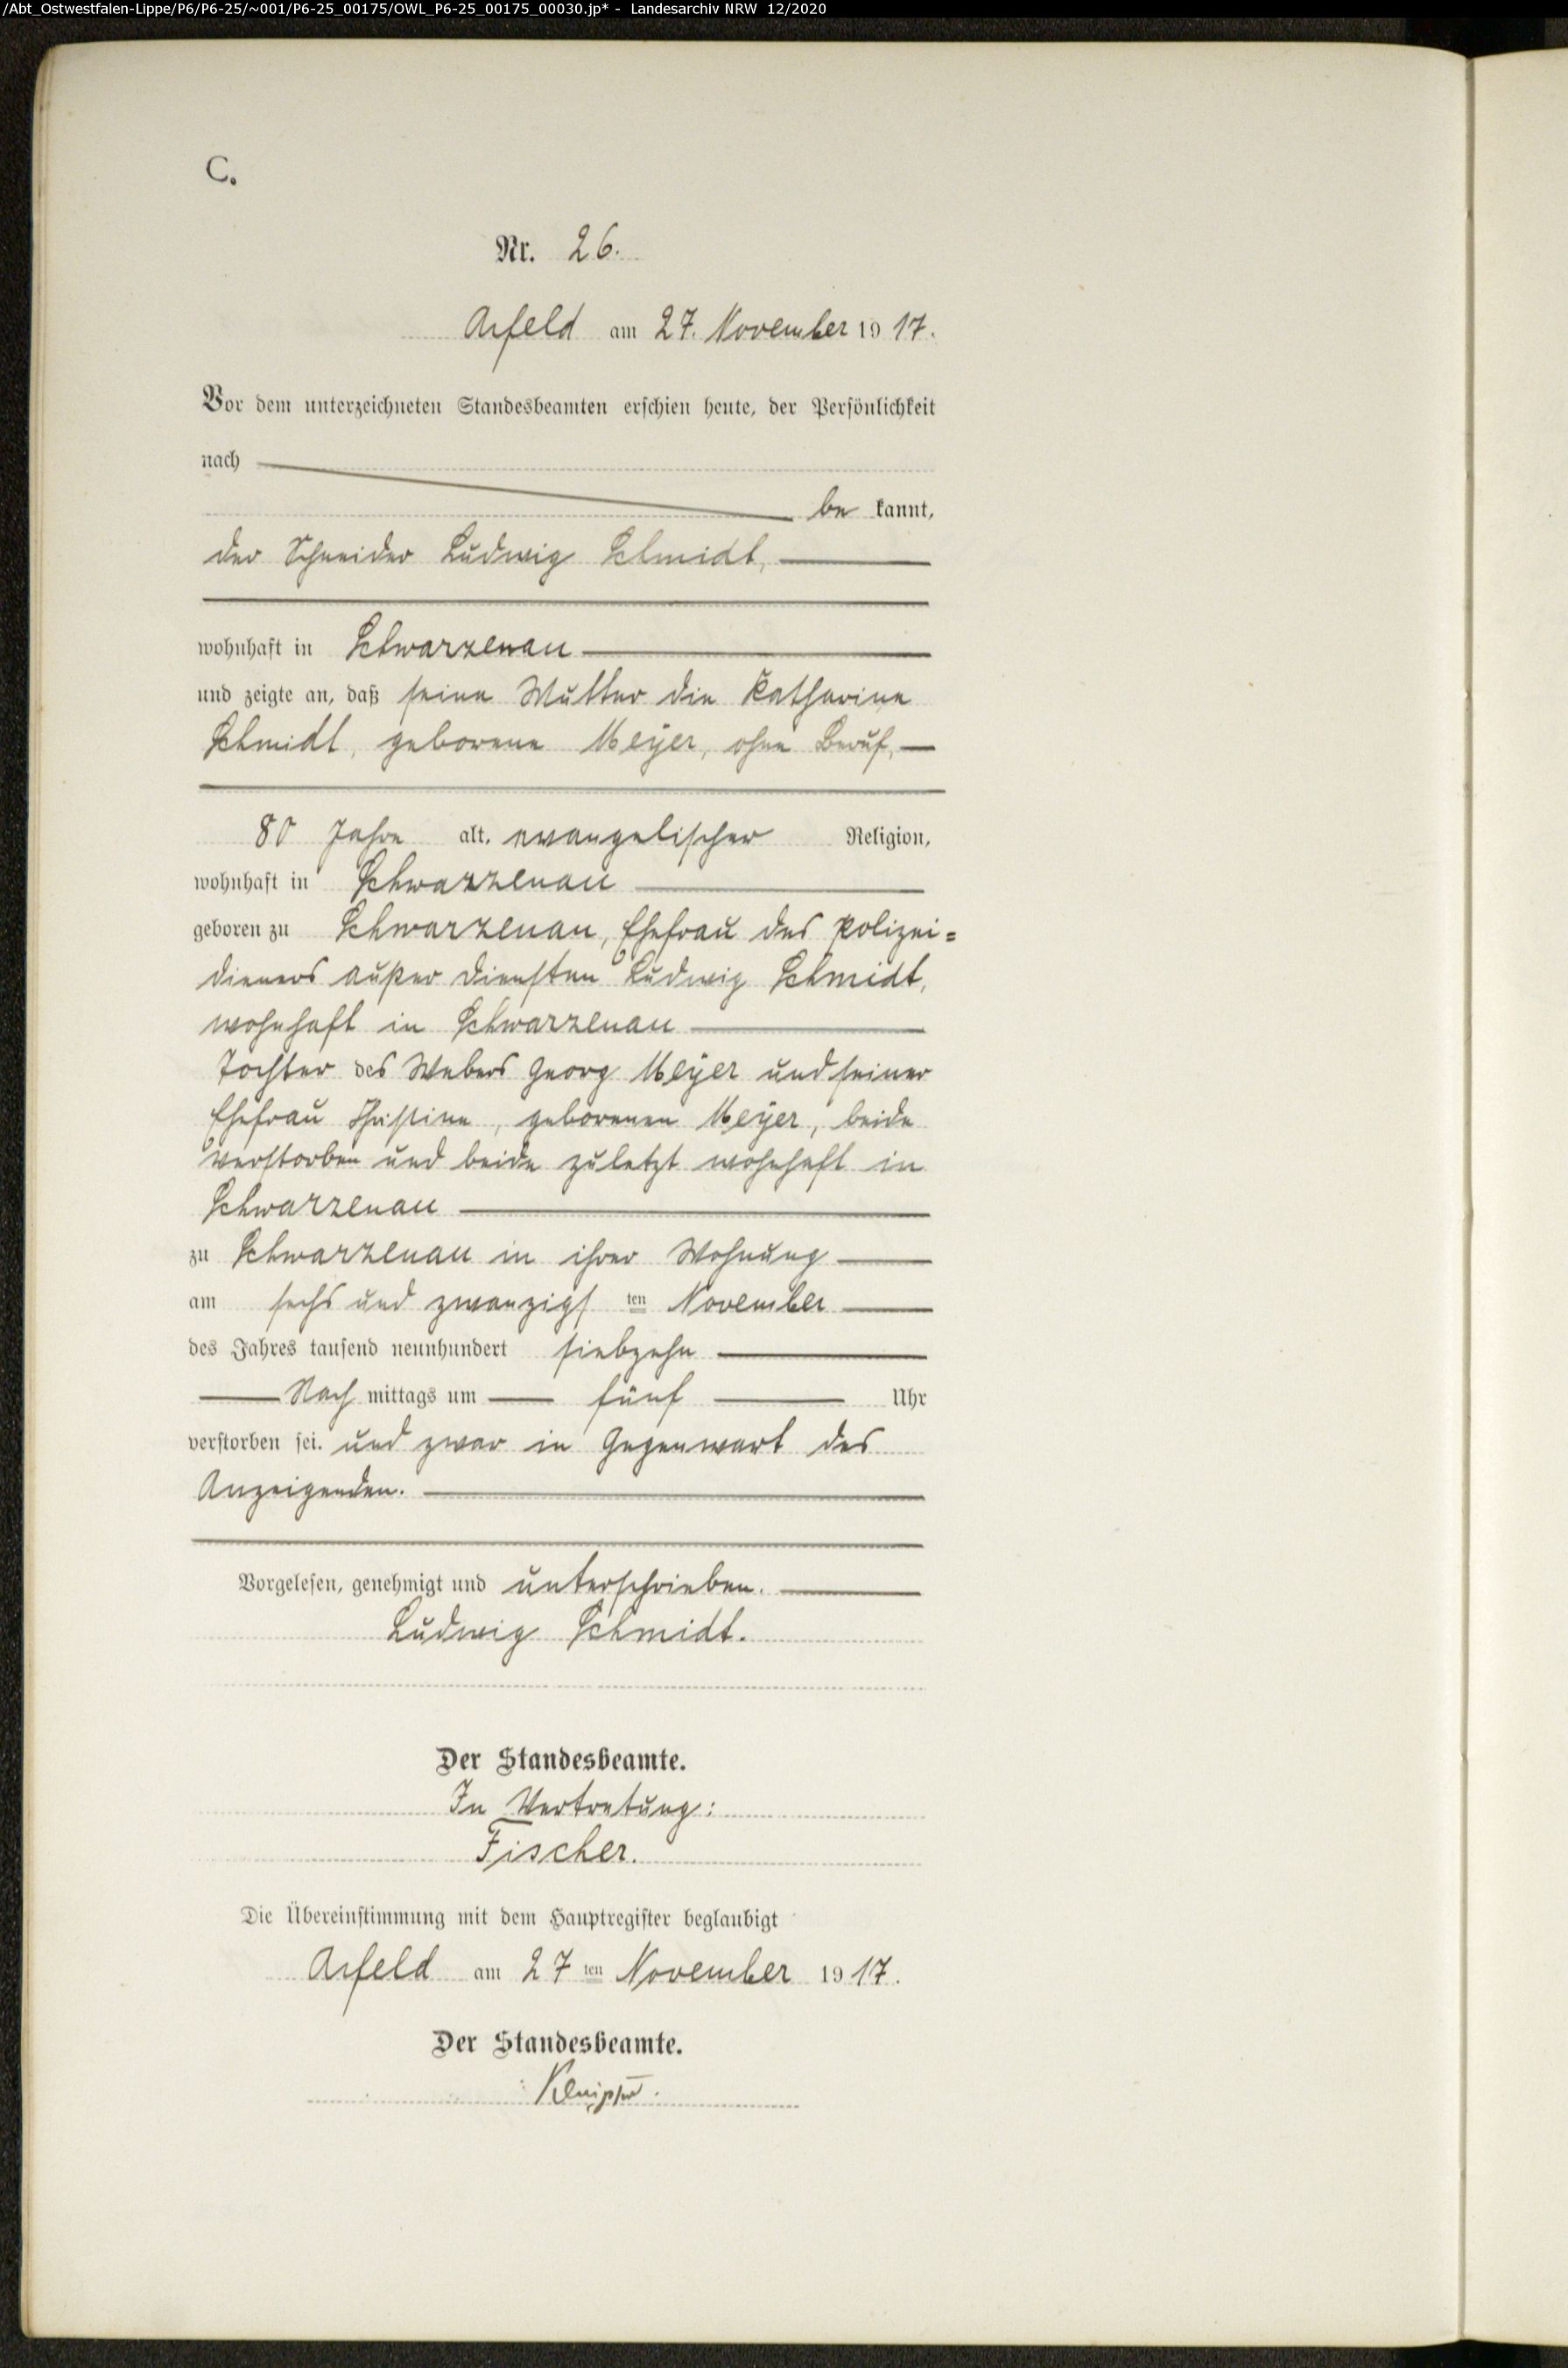 /Abt_Ostwestfalen-Lippe/P6/P6-25/~001/P6-25_00175/OWL_P6-25_00175_00030.jp* - Landesarchiv NRW 12/2020
C.
Nr. 26.
Arfeld am 27. November 1917.
Vor dem unterzeichneten Standesbeamten erschien heute, der Persönlichkeit
nach
be kannt,
der Schneider Ludwig Schmidt,
wohnhaft in Schwarzenau
und zeigte an, daß seine Mutter die Katharine
Schmidt, geborene Meyer, ohne Beruf,
80 Jahre alt, evangelischer Religion,
wohnhaft in Schwarzenau
geboren zu Schwarzenau, Ehefrau des Polizei=
dieners außer Diensten Ludwig Schmidt,
wohnhaft in Schwarzenau
Tochter des Webers Georg Meyer und seiner
Ehefrau, geborenen Meyer, beide
verstorben und beide zuletzt wohnhaft in
Schwarzenau
zu Schwarzenau in ihrer Wohnung
am sechs und zwanzigs ten November
des Jahres tausend neunhundert siebzehn
Nach mittags um fünf Uhr
verstorben sei. und zwar in Gegenwart des
Anzeigenden.
Vorgelesen, genehmigt und unterschrieben.
Ludwig Schmidt.
Der Standesbeamte.
In Vertretung:
Fischer.
Die Übereinstimmung mit dem Hauptregister beglaubigt
Arfeld am 27 ten November 1917.
Der Standesbeamte.